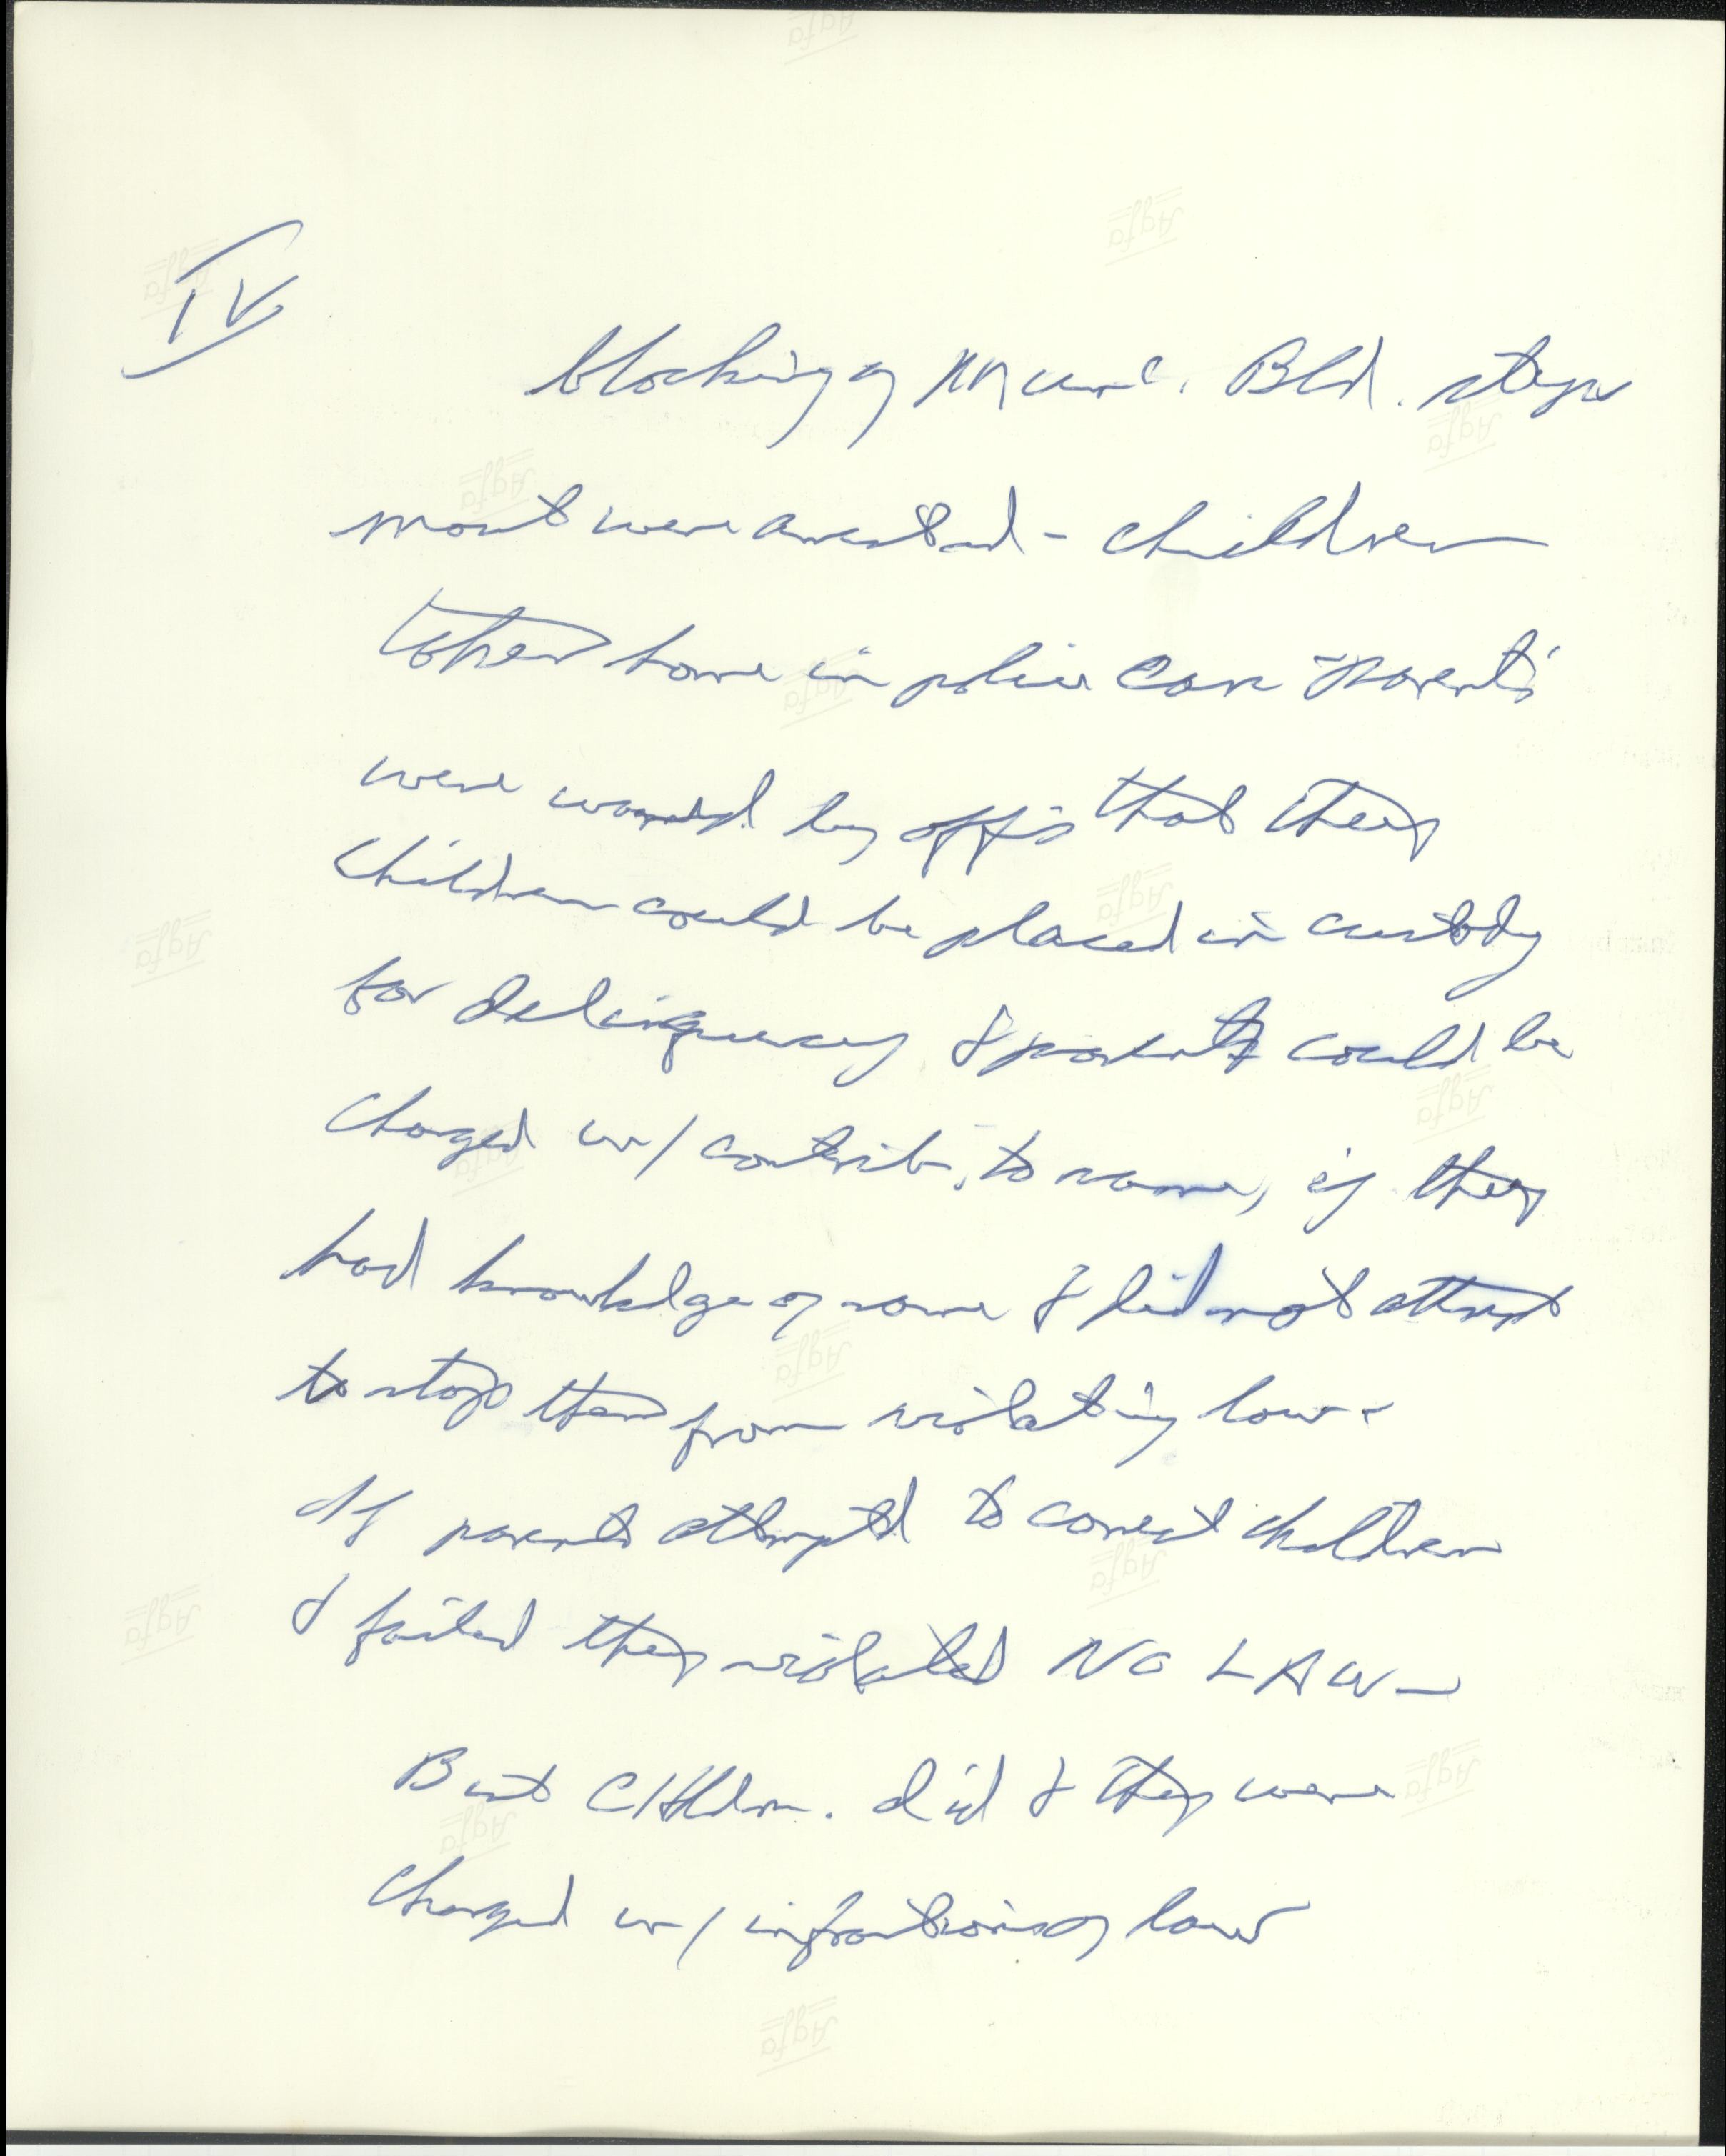 IV
blocking of Munc. Bld. steps
most were arrested - children
taken home in police cars - parents
were warned by offs that they
children could be placed in custody
for delinquency & parents could be
charged w/ contrib. to same, if they
had knowledge of same & did not attempt
to stop them from violating law -
If parents attempted to correct children
& failed they violated NO LAW -
But CHldrn. did & they were
charged w/ infractions of law
Agfa